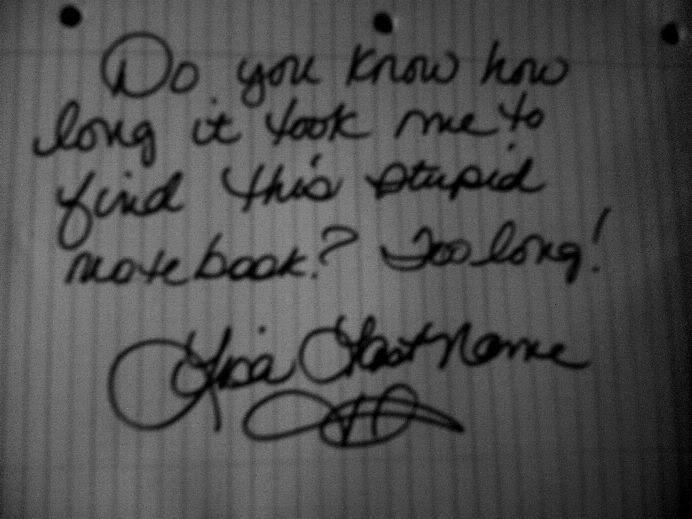 Do you know how
long it took me to
find this stupid
notebook? Too long!
Lisa Lastname